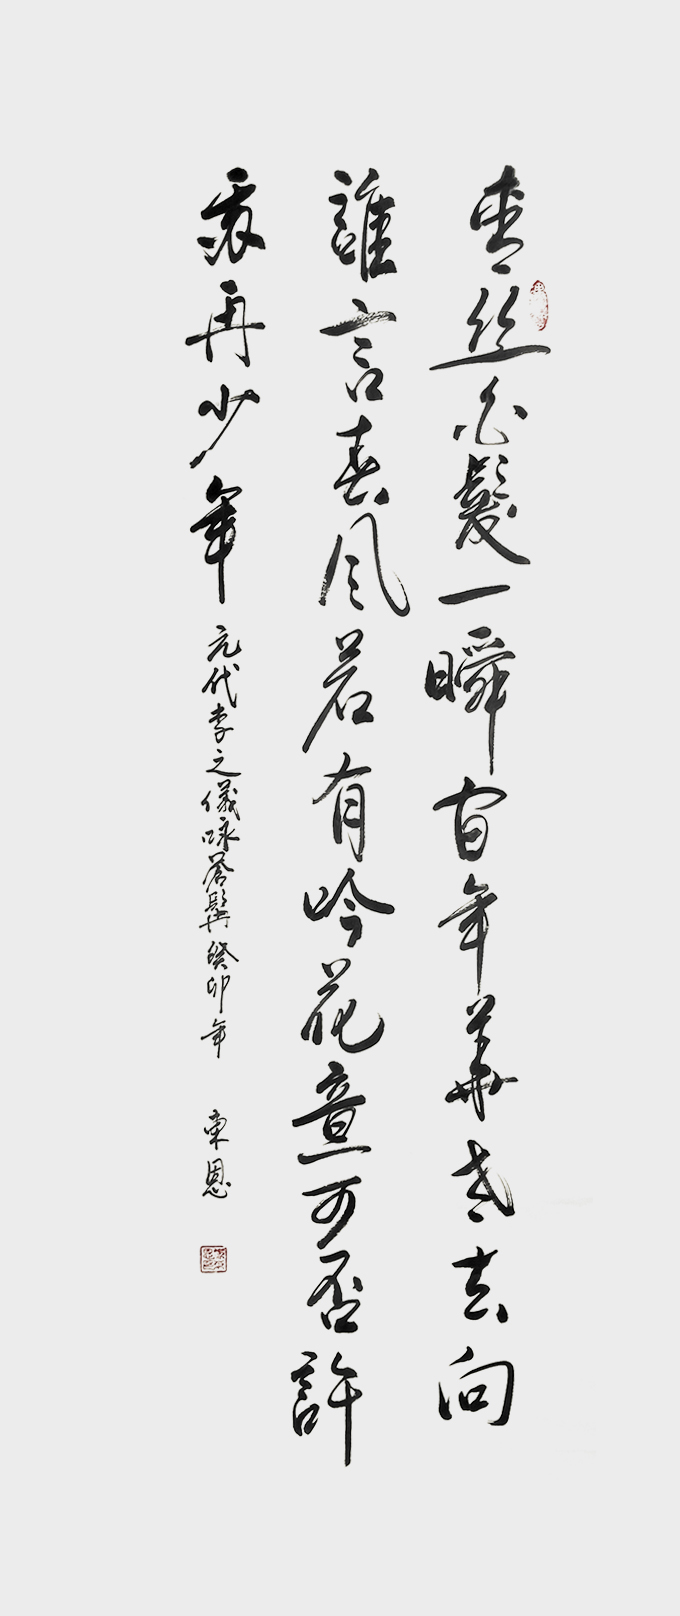 青丝白髮一瞬间年華老去向
誰言春风若有吟花意可否許
我再少年
元代李之儀咏蒼髯癸卯年
東恩